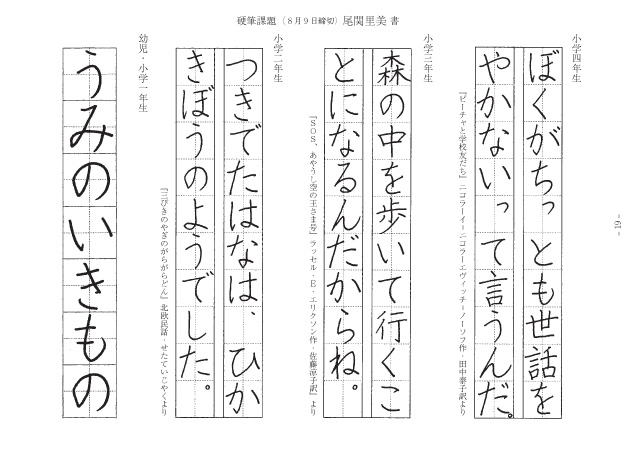 硬筆課題(8月9日締切)尾関里美 書
小学四年生
ぼくがちっとも世話を
やかないって言うんだ。
『ビーチャと学校友だち』ニコラーイ=ニコラーエヴィッチ=ノーソフ作・田中泰子訳より
小学三年生
森の中を歩いて行くこ
とになるんだからね。
『SOS、あやうし空の王さま号』ラッセル・E・エリクソン作・佐藤凉子訳』より
小学二年生
つきでたはなは、ひか
きぼうのようでした。
『三びきのやぎのがらがらどん』北欧民話・せたていじやくより
幼児・小学一年生
うみのいきもの
- 19 -